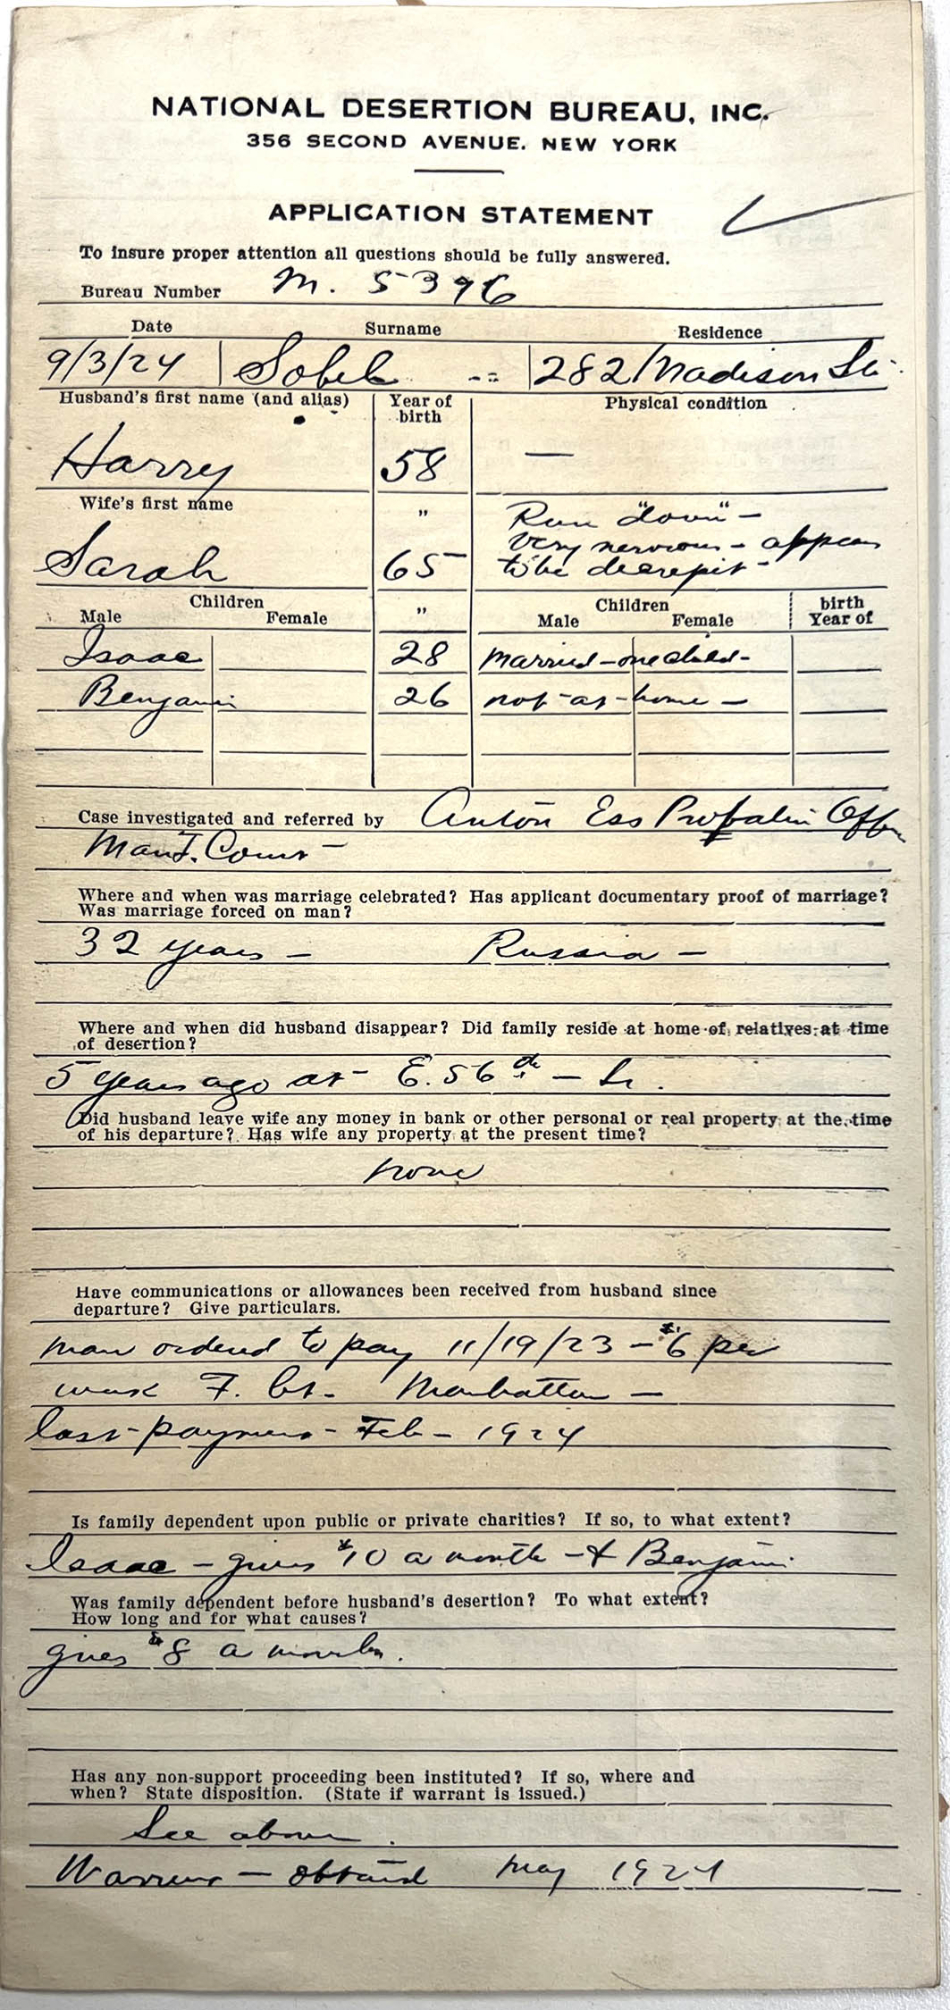 NATIONAL DESERTION BUREAU, INC.
356 SECOND AVENUE. NEW YORK
APPLICATION STATEMENT
To insure proper attention all questions should be fully answered.
Bureau Number M. 5396
Date Surname Residence
9/3/24 Sobel 282 Madison St.
Husband's first name (and alias) Year of birth Physical condition
Harry 58 —
Wife's first name " Run "down" –
Very nervous – appears
Sarah 65 to be decrepit –
Children " Children birth
Male Female Male Female Year of
Isaac 28 married – one child –
Benjamin 26 not – at – home –
Case investigated and referred by Anton Ess Probation Offr
Man F. Court –
Where and when was marriage celebrated? Has applicant documentary proof of marriage?
Was marriage forced on man?
32 years – Russia –
Where and when did husband disappear? Did family reside at home of relatives at time
of desertion?
5 years ago at – E. 56th – St.
Did husband leave wife any money in bank or other personal or real property at the time
of his departure? Has wife any property at the present time?
none
Have communications or allowances been received from husband since
departure? Give particulars.
man ordered to pay 11/19/23 – $6 per
week F. Ct. Manhattan –
last – payment – Feb – 1924
Is family dependent upon public or private charities? If so, to what extent?
Isaac – gives $10 a month – & Benjamin
Was family dependent before husband's desertion? To what extent?
How long and for what causes?
gives $8 a month.
Has any non-support proceeding been instituted? If so, where and
when? State disposition. (State if warrant is issued.)
See above.
Warrant – obtained May 1924